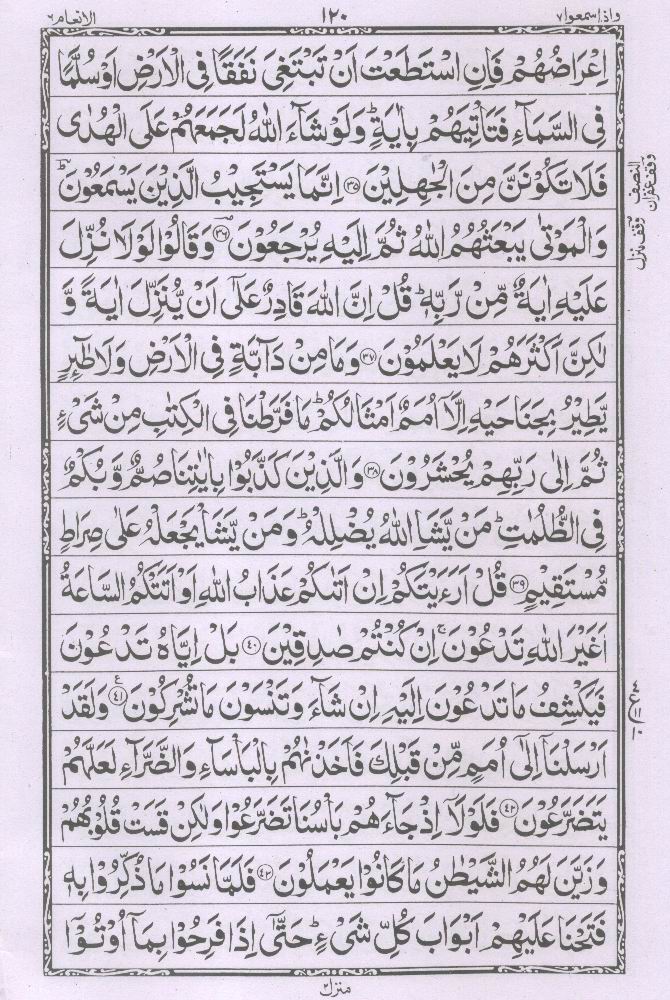 واذاسمعوا٧ ١٢٠ الانعام٦
اِعْرَاضُهُمْ فَاِنِ اسْتَطَعْتَ اَنْ تَبْتَغِیَ نَفَقًا فِی الْاَرْضِ اَوْ سُلَّمًا
فِی السَّمَآءِ فَتَاْتِیَهُمْ بِاٰیَةٍ ؕ وَلَوْ شَآءَ اللّٰهُ لَجَمَعَهُمْ عَلَی الْهُدٰی
فَلَا تَكُوْنَنَّ مِنَ الْجٰهِلِیْنَ ﴿۳۵﴾ اِنَّمَا یَسْتَجِیْبُ الَّذِیْنَ یَسْمَعُوْنَ ؕ
وَالْمَوْتٰی یَبْعَثُهُمُ اللّٰهُ ثُمَّ اِلَیْهِ یُرْجَعُوْنَ ﴿۳۶﴾ وَقَالُوْا لَوْلَا نُزِّلَ
عَلَیْهِ اٰیَةٌ مِّنْ رَّبِّهٖ ؕ قُلْ اِنَّ اللّٰهَ قَادِرٌ عَلٰۤی اَنْ یُّنَزِّلَ اٰیَةً وَّ
لٰكِنَّ اَكْثَرَهُمْ لَا یَعْلَمُوْنَ ﴿۳۷﴾ وَمَا مِنْ دَآبَّةٍ فِی الْاَرْضِ وَلَا طٰٓئِرٍ
یَّطِیْرُ بِجَنَاحَیْهِ اِلَّاۤ اُمَمٌ اَمْثَالُكُمْ ؕ مَا فَرَّطْنَا فِی الْكِتٰبِ مِنْ شَیْءٍ
ثُمَّ اِلٰی رَبِّهِمْ یُحْشَرُوْنَ ﴿۳۸﴾ وَالَّذِیْنَ كَذَّبُوْا بِاٰیٰتِنَا صُمٌّ وَّبُكْمٌ
فِی الظُّلُمٰتِ ؕ مَنْ یَّشَاِ اللّٰهُ یُضْلِلْهُ ؕ وَمَنْ یَّشَاْ یَجْعَلْهُ عَلٰی صِرَاطٍ
مُّسْتَقِیْمٍ ﴿۳۹﴾ قُلْ اَرَءَیْتَكُمْ اِنْ اَتٰىكُمْ عَذَابُ اللّٰهِ اَوْ اَتَتْكُمُ السَّاعَةُ
اَغَیْرَ اللّٰهِ تَدْعُوْنَ ۚ اِنْ كُنْتُمْ صٰدِقِیْنَ ﴿۴۰﴾ بَلْ اِیَّاهُ تَدْعُوْنَ
فَیَكْشِفُ مَا تَدْعُوْنَ اِلَیْهِ اِنْ شَآءَ وَتَنْسَوْنَ مَا تُشْرِكُوْنَ ﴿۴۱﴾ وَلَقَدْ
اَرْسَلْنَاۤ اِلٰۤی اُمَمٍ مِّنْ قَبْلِكَ فَاَخَذْنٰهُمْ بِالْبَاْسَآءِ وَالضَّرَّآءِ لَعَلَّهُمْ
یَتَضَرَّعُوْنَ ﴿۴۲﴾ فَلَوْلَاۤ اِذْ جَآءَهُمْ بَاْسُنَا تَضَرَّعُوْا وَلٰكِنْ قَسَتْ قُلُوْبُهُمْ
وَزَیَّنَ لَهُمُ الشَّیْطٰنُ مَا كَانُوْا یَعْمَلُوْنَ ﴿۴۳﴾ فَلَمَّا نَسُوْا مَا ذُكِّرُوْا بِهٖ
فَتَحْنَا عَلَیْهِمْ اَبْوَابَ كُلِّ شَیْءٍ ؕ حَتّٰۤی اِذَا فَرِحُوْا بِمَاۤ اُوْتُوْۤا
النصف
وقف غفران
وقف منزل
منزل٢